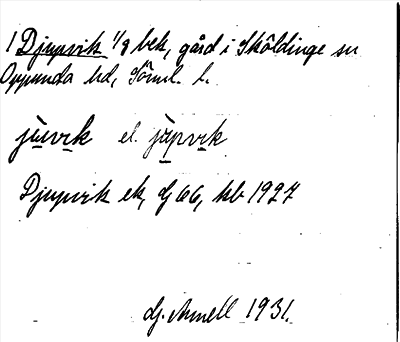 1 Djupvik 1/8 bek, gård i Sköldinge sn
Oppunda hd, Söml. l.
jùvik el. jùpvik
Djupvik ek, Gj 66, kb 1927
G. Arnell 1931.